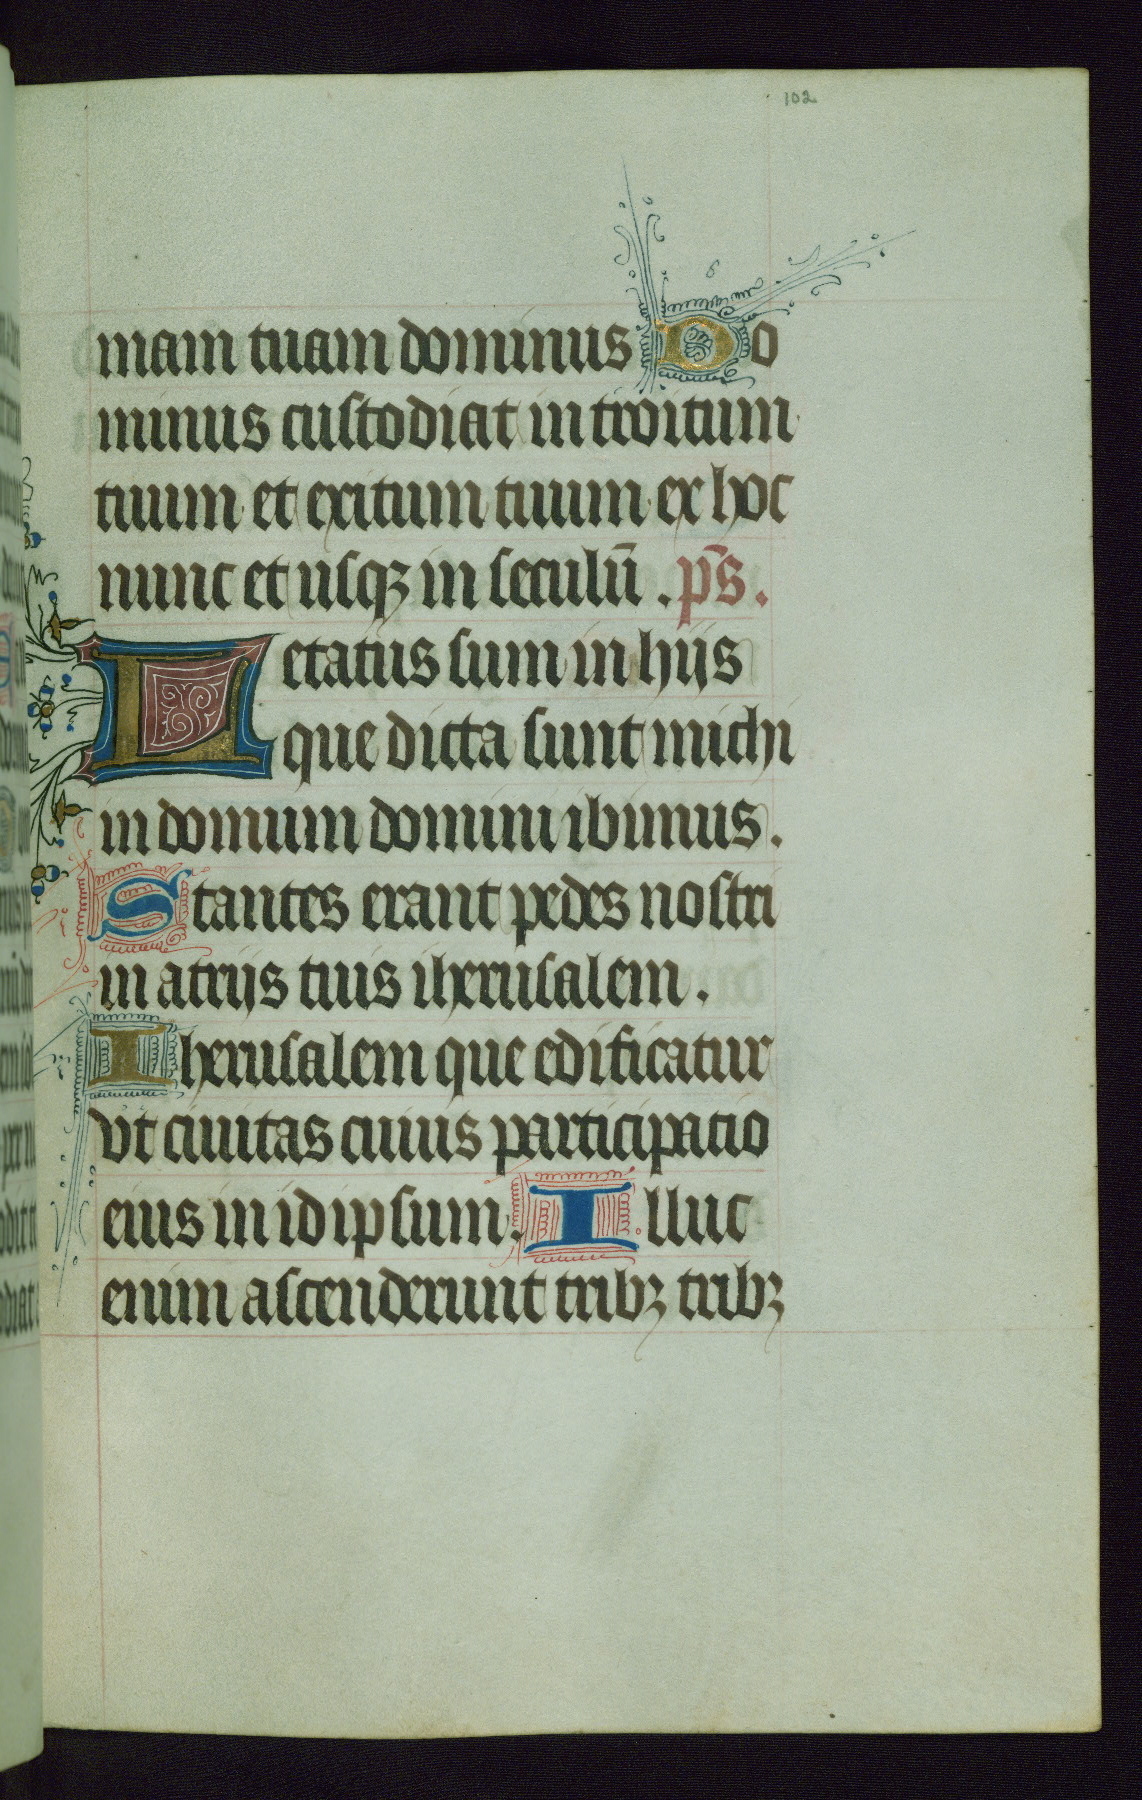 102
6
mam tuam dominus Do
minus custodiat introitum
tuum et exitum tuum ex hoc
nunc et usqꝫ in seculū . p̄s.
Letatus sum in hijs
que dicta sunt michi
in domum domini ibimus.
Stantes erant pedes nostri
in atrijs tuis iherusalem.
Iherusalem que edificatur
vt ciuitas cuius participatio
eius in idipsum. Illuc
enim ascenderunt tribꝫ tribꝫ